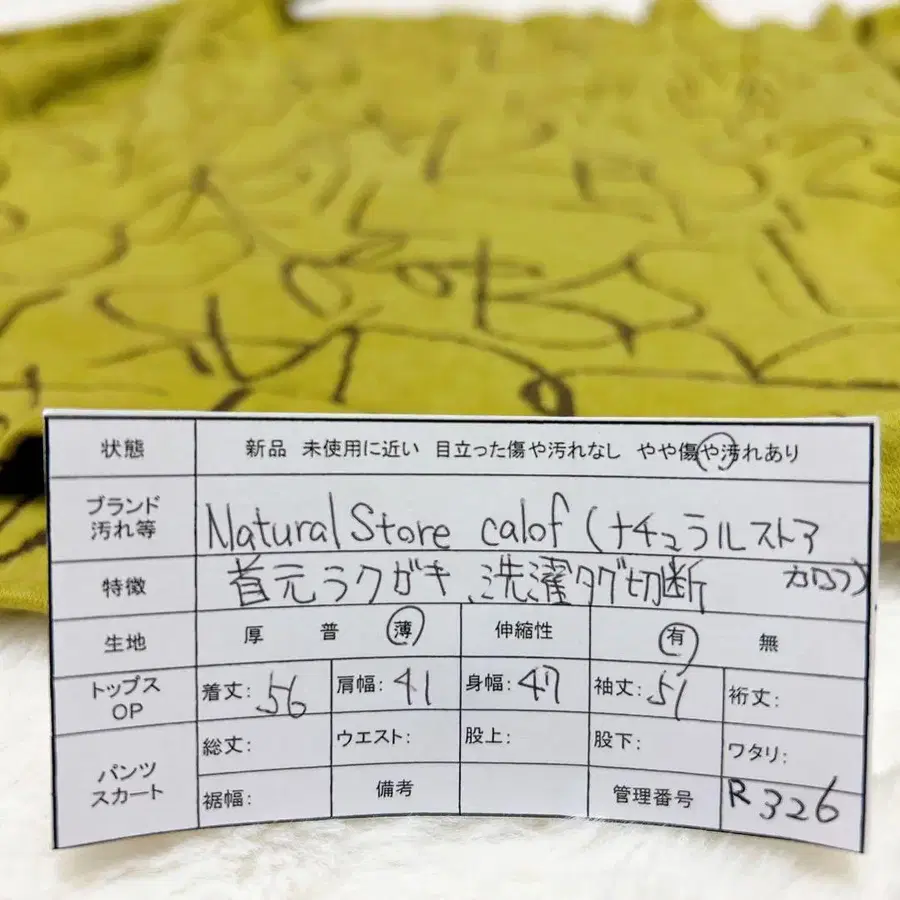 状態 新品 未使用に近い 目立った傷や汚れなし やや傷や汚れあり
ブランド
汚れ等 Natural Store calof (ナチュラルストア
カロフ)
特徴 首元ラクガキ、洗濯タグ切断
生地 厚 普 薄 伸縮性 有 無
トップス
OP 着丈: 56 肩幅: 41 身幅: 47 袖丈: 51 裄丈:
パンツ
スカート 総丈: ウエスト: 股上: 股下: ワタリ:
裾幅: 備考 管理番号 R326